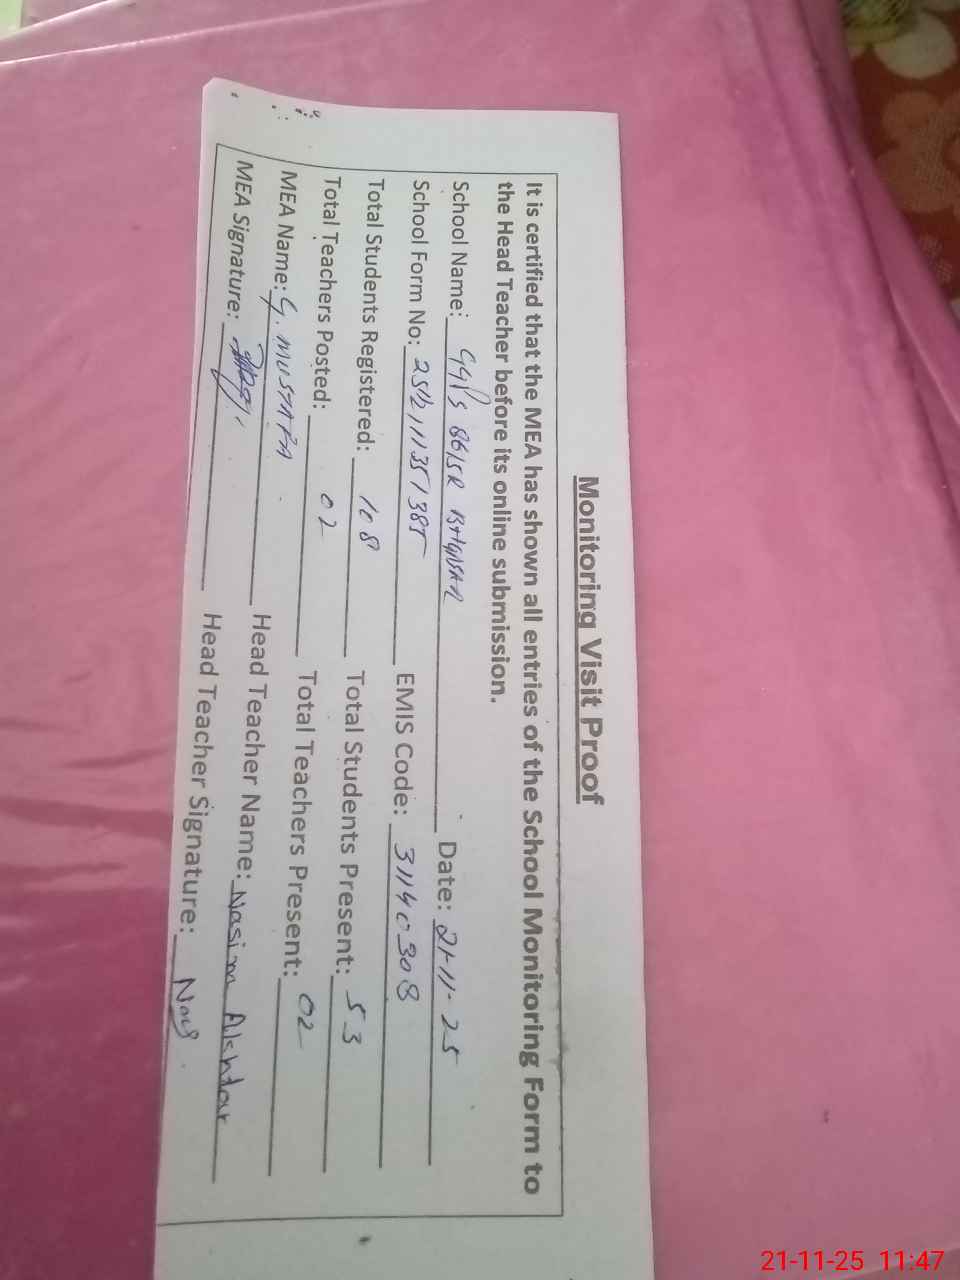 Monitoring Visit Proof
It is certified that the MEA has shown all entries of the School Monitoring Form to
the Head Teacher before its online submission.
School Name: GGPS 86/5R Date: 21-11-25
School Form No: EMIS Code: 31140308
Total Students Registered: 108 Total Students Present: 53
Total Teachers Posted: 02 Total Teachers Present: 02
MEA Name: G. MUSTAFA Head Teacher Name: Nasim Akhtar
MEA Signature: Head Teacher Signature:
21-11-25 11:47